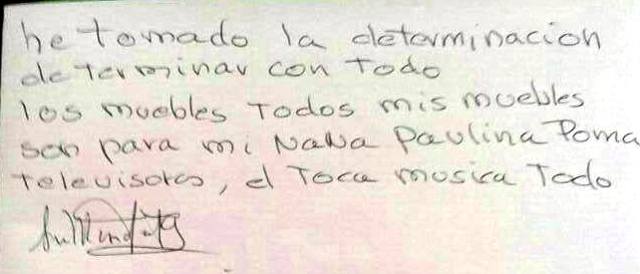 he tomado la determinacion
determinar con todo
los muebles todos mis muebles
son para mi NaNa Paulina Poma
televisores, el Toca musica Todo